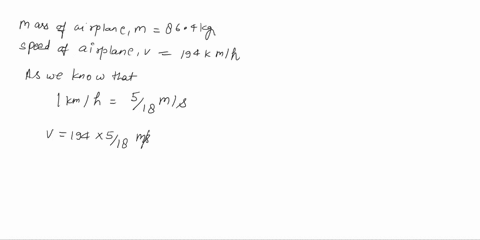 Mass of airplane, m = 86.4 kg
speed of airplane, v = 194 km/h
As we know that
1 km/h = 5/18 m/s
V = 194 × 5/18 m/s